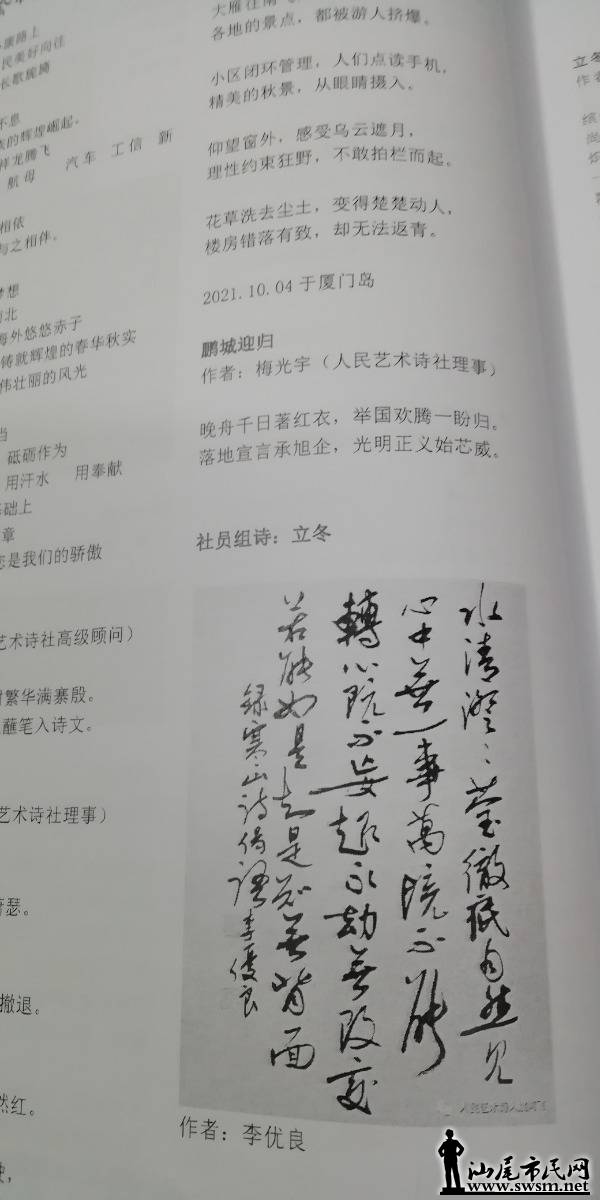 康路上
民美好向往
长歌旖旎
不息
族的辉煌崛起。
祥龙腾飞
航母 汽车 工信 新
相依
与之相伴。
梦想
南北
海外悠悠赤子
铸就辉煌的春华秋实
伟壮丽的风光
当
砥砺作为
用汗水 用奉献
基础上
章
您是我们的骄傲
艺术诗社高级顾问）
繁华满寨殷。
蘸笔入诗文。
艺术诗社理事）
萧瑟。
撤退。
然红。
大雁往南飞
各地的景点，都被游人挤爆。
小区闭环管理，人们点读手机，
精美的秋景，从眼睛摄入。
仰望窗外，感受乌云遮月，
理性约束狂野，不敢拍栏而起。
花草洗去尘土，变得楚楚动人，
楼房错落有致，却无法返青。
2021.10.04 于厦门岛
鹏城迎归
作者：梅光宇（人民艺术诗社理事）
晚舟千日著红衣，举国欢腾一盼归。
落地宣言承旭企，光明正义始芯威。
社员组诗：立冬
水清澄澄莹徹底自然见
心中無一事萬境不能
轉心既不妄起永劫無改变
若能如是知是知無背面
録寒山詩偈語李優良
人民艺术诗人
作者：李优良
立冬
作者
缤
尚
一
汕尾市民网
www.swsm.net